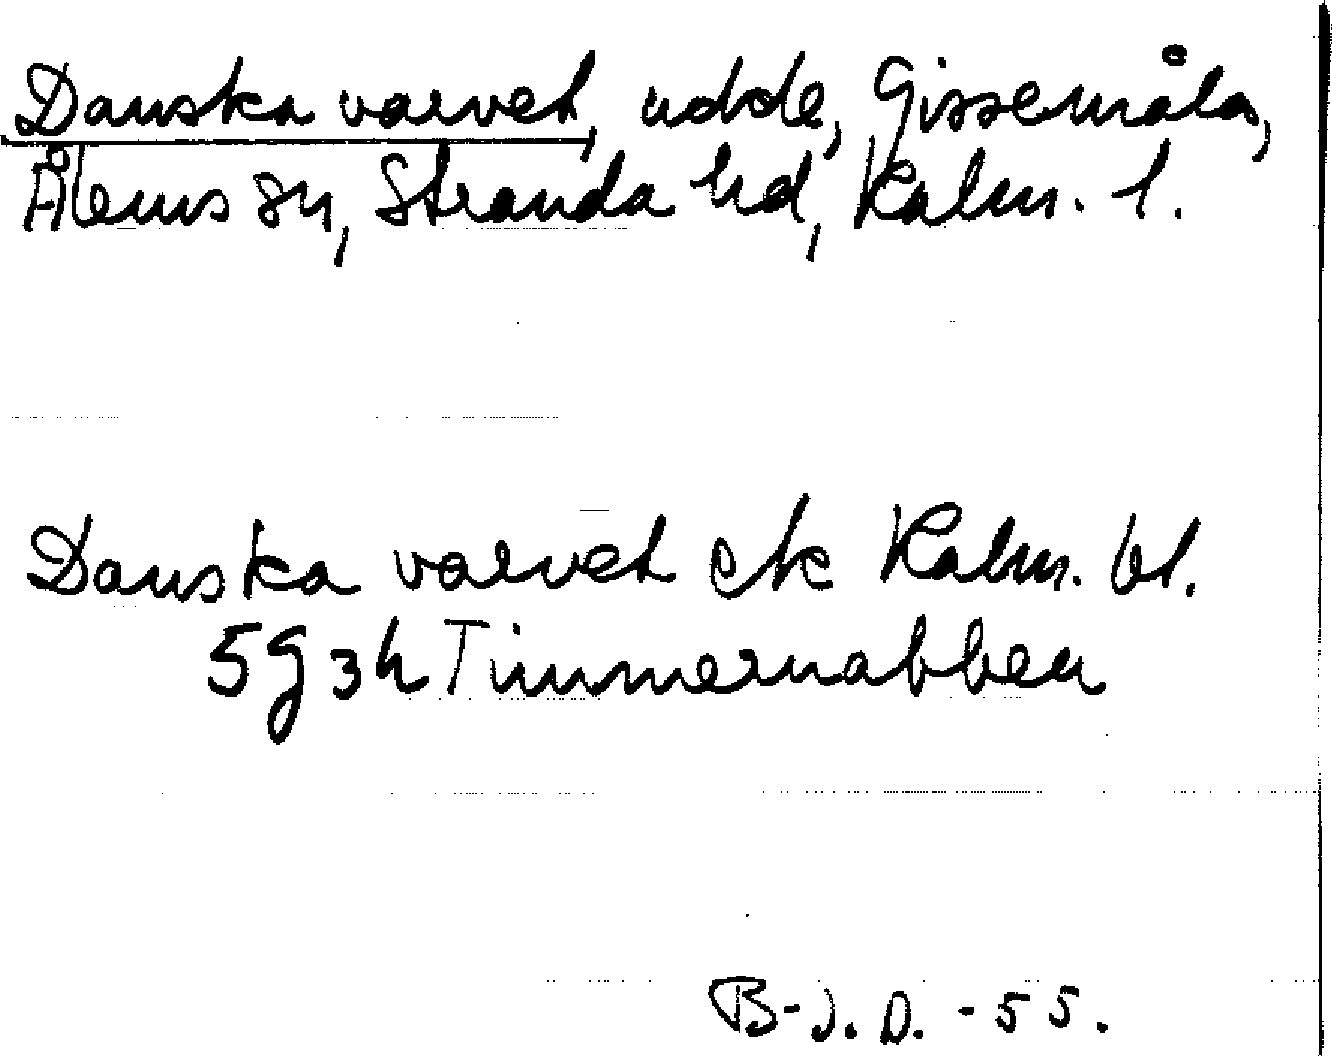 Danska varvet, udde, Gissemåla,
Ålems sn, Stranda hd, Kalm. l.
Danska varvet ek Kalm. bl.
5g3h Timmernabben
B-J.D. -55.